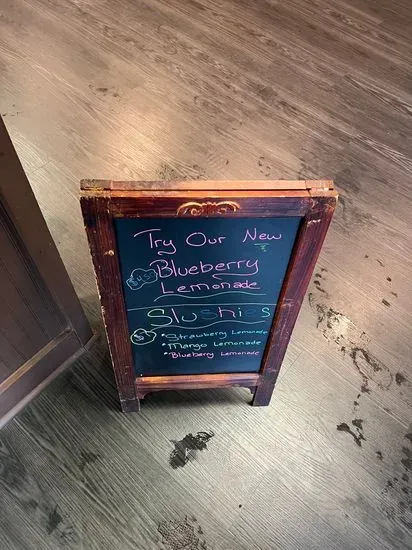 Try Our New
Blueberry
Lemonade
Slushies
• Strawberry Lemonade
• Mango Lemonade
• Blueberry Lemonade